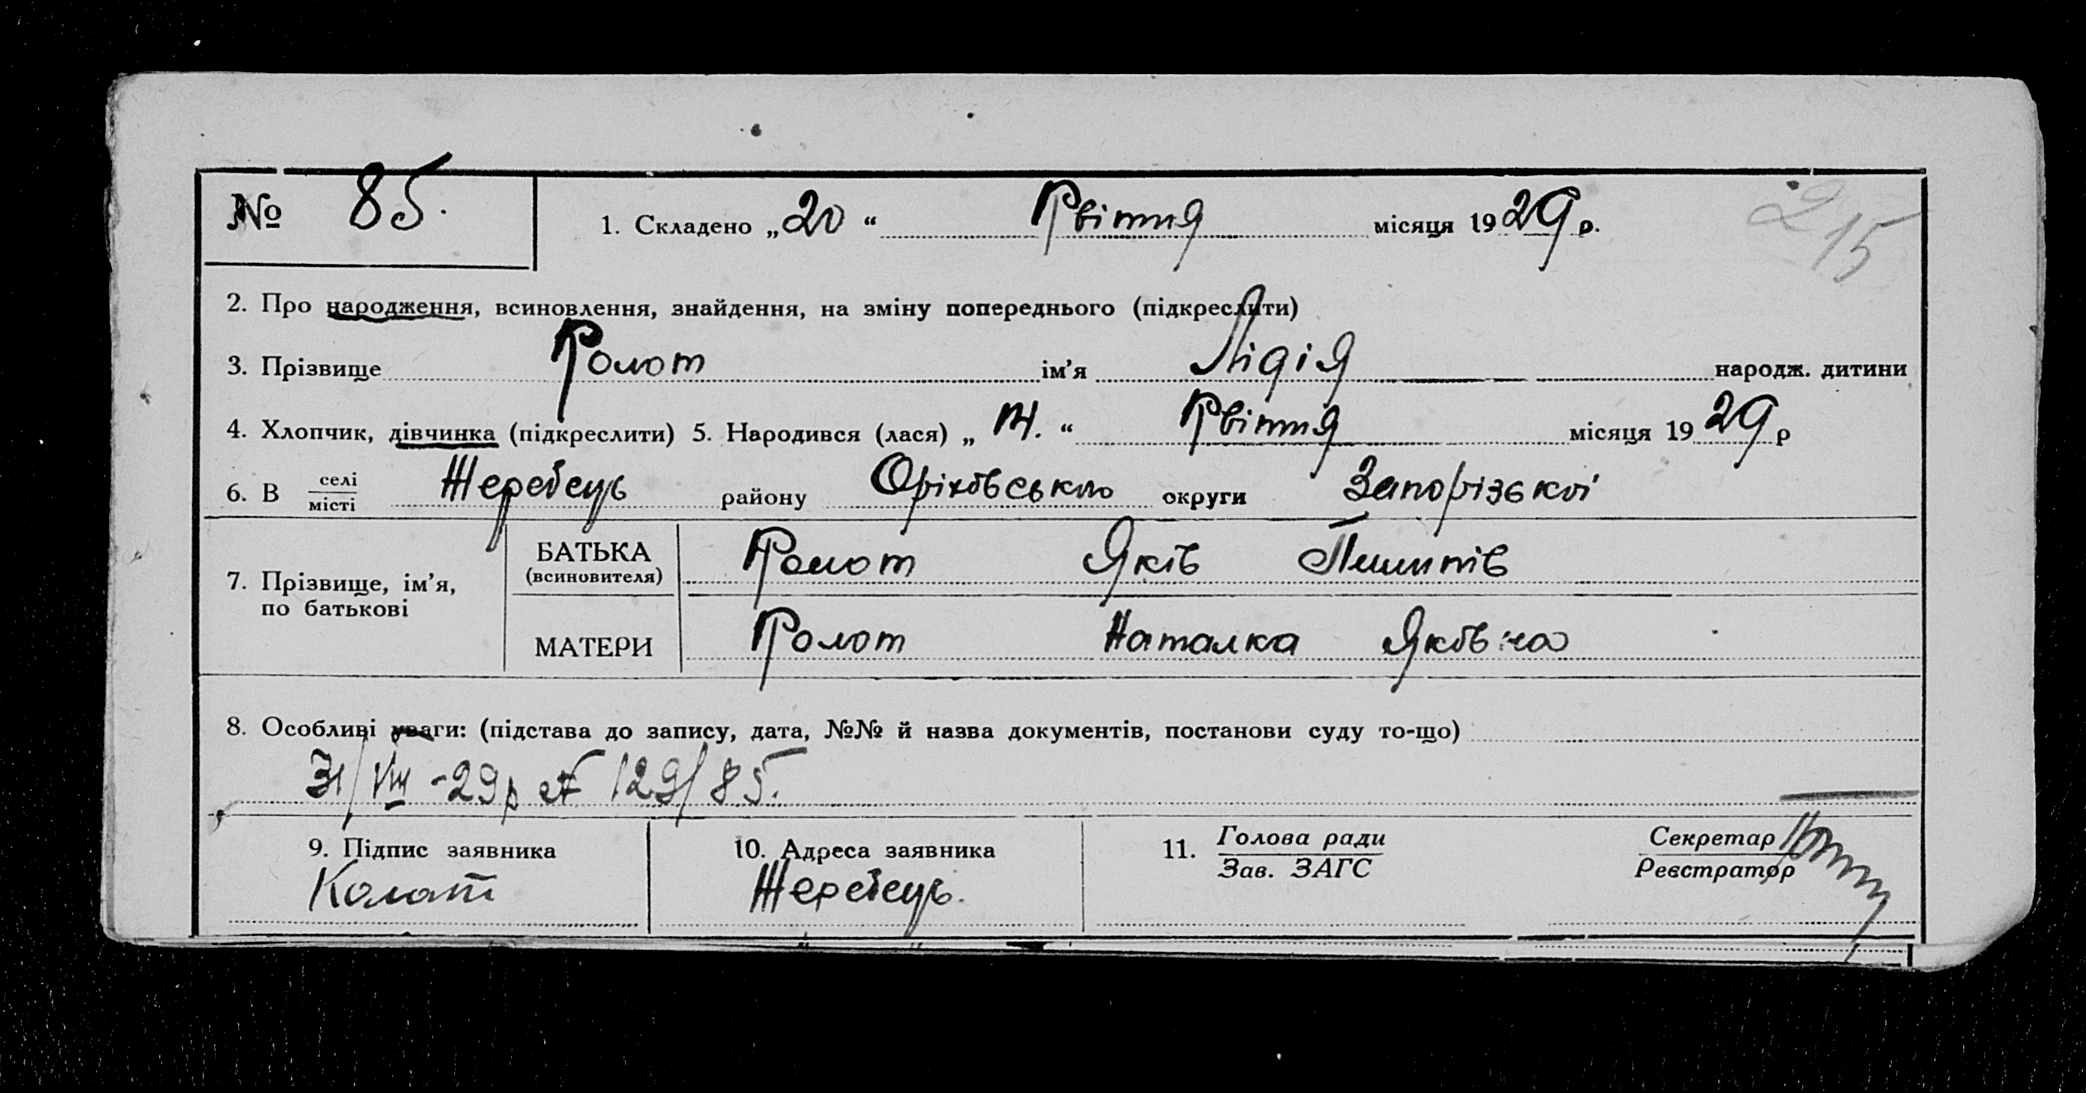 № 85.
1. Складено „20“ Квітня місяця 1929 р.
215
2. Про народження, всиновлення, знайдення, на зміну попереднього (підкреслити)
3. Прізвище Колот ім’я Лідія народж. дитини
4. Хлопчик, дівчинка (підкреслити) 5. Народився (лася) „14.“ Квітня місяця 1929 р
6. В селі Жеребець району Оріхівського округи Запорізької
місті
7. Прізвище, ім’я, по батькові
БАТЬКА Колот Яків Пилипів
(всиновителя)
МАТЕРИ Колот Наталка Яківна
8. Особливі уваги: (підстава до запису, дата, №№ й назва документів, постанови суду то-що)
31/VIII -29р № 129/85.
9. Підпис заявника
Колот
10. Адреса заявника
Жеребець.
11. Голова ради
Зав. ЗАГС
Секретар
Реєстратор